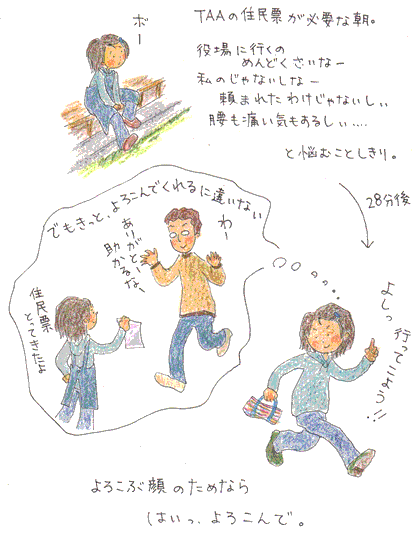 ボー
TAAの住民票が必要な朝。
役場に行くの
めんどくさいなー
私のじゃないしなー
頼まれたわけじゃないしぃ
腰も痛い気もあるしぃ‥‥
と悩むことしきり。
28分後
でもきっと、よろこんでくれるに違いない
わー
ありがとうな、
助かるー
住民票
とってきたよ
よしっ行てこよう!!
よろこぶ顔のためなら
はいっ、よろこんで。